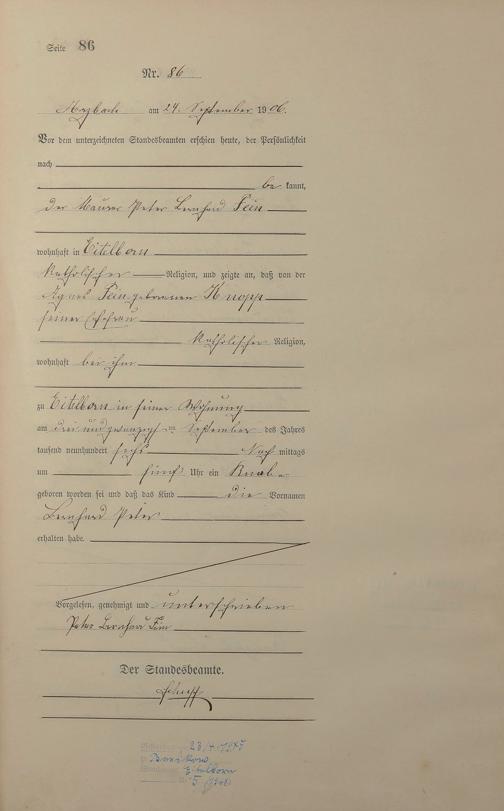 Seite 86
Nr. 86
am 24. September 1906.
Vor dem unterzeichneten Standesbeamten erschien heute, der Persönlichkeit
nach
be kannt,
der Maurer Peter Bernhard Fein
wohnhaft in Eitelborn
katholischer Religion, und zeigte an, daß von der
Agnes Fein geborenen Knopp
seiner Ehefrau
katholischer Religion,
wohnhaft bei ihm
zu Eitelborn in seiner Wohnung
am drei und zwanzigsten September des Jahres
tausend neunhundert sechs Nach mittags
um fünf Uhr ein Knabe
geboren worden sei und daß das Kind die Vornamen
Bernhard Peter
erhalten habe.
Vorgelesen, genehmigt und unterschrieben
Peter Bernhard Fein
Der Standesbeamte.
Eitelborn